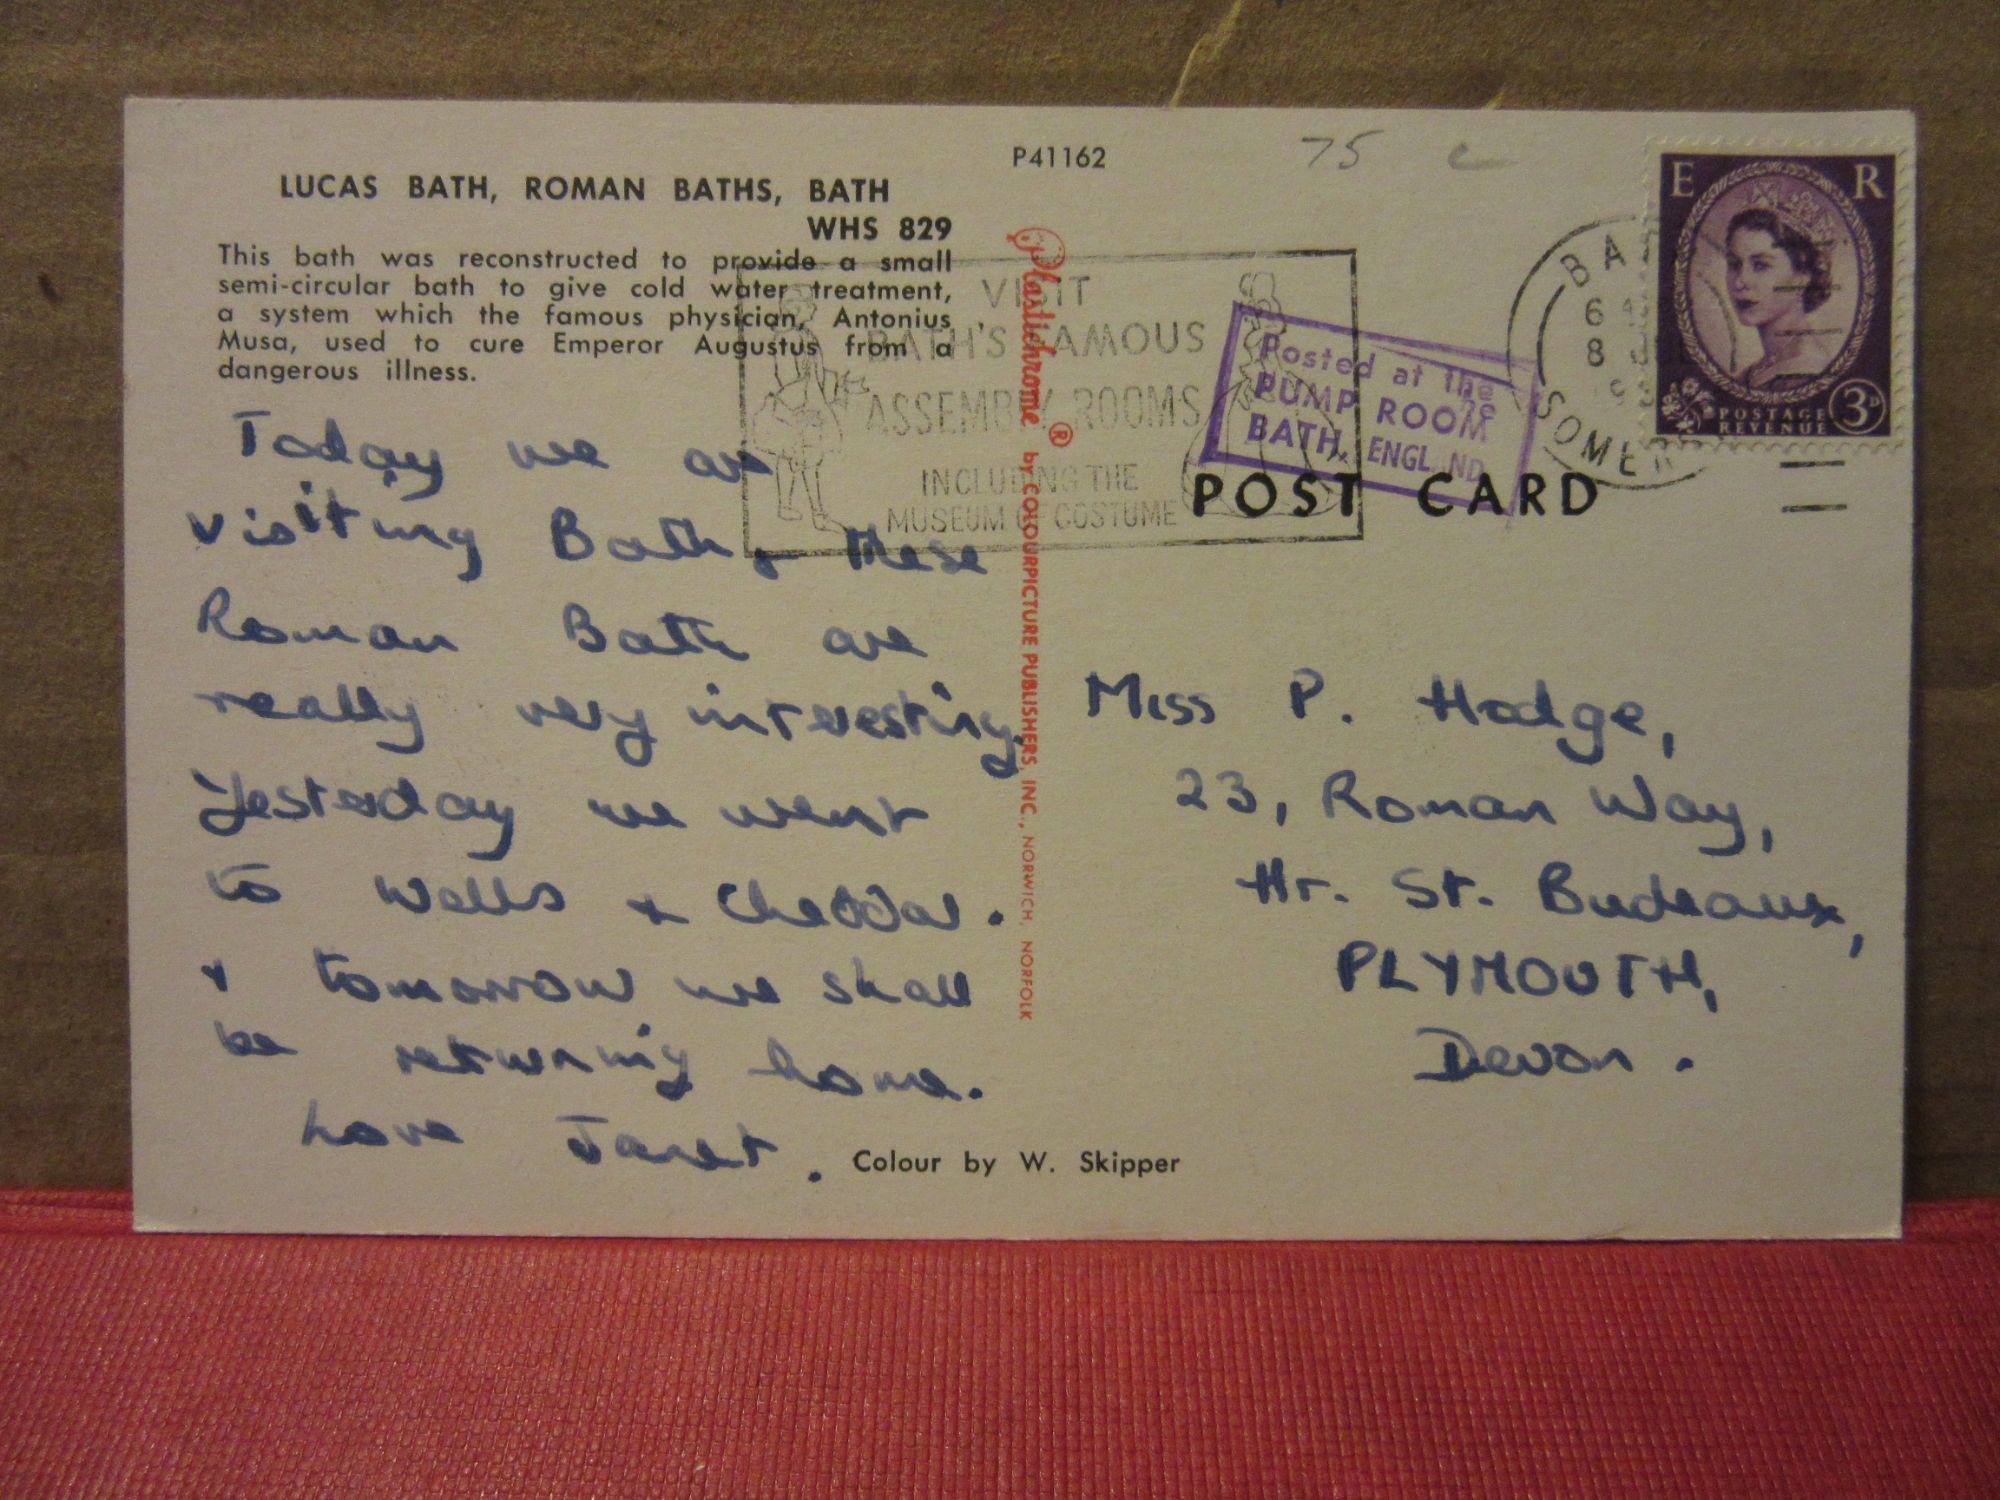 LUCAS BATH, ROMAN BATHS, BATH
WHS 829
This bath was reconstructed to provide a small
semi-circular bath to give cold water treatment,
a system which the famous physician, Antonius
Musa, used to cure Emperor Augustus from a
dangerous illness.
P41162
75 c
E R
POSTAGE
REVENUE
3D
BA
6
8
SOMER
VISIT
BATH'S FAMOUS
ASSEMBLY ROOMS
INCLUDING THE
MUSEUM OF COSTUME
Posted at the
PUMP ROOM
BATH, ENGLAND
POST CARD
Plastichrome ® by COLOURPICTURE PUBLISHERS, INC., NORWICH, NORFOLK
Today we are
visiting Bath, these
Roman Bath are
really very interesting.
Yesterday we went
to Wells & Cheddar.
& tomorrow we shall
be returning home.
Love Janet.
Miss P. Hodge,
23, Roman Way,
Hr. St. Budeaux,
PLYMOUTH,
Devon.
Colour by W. Skipper